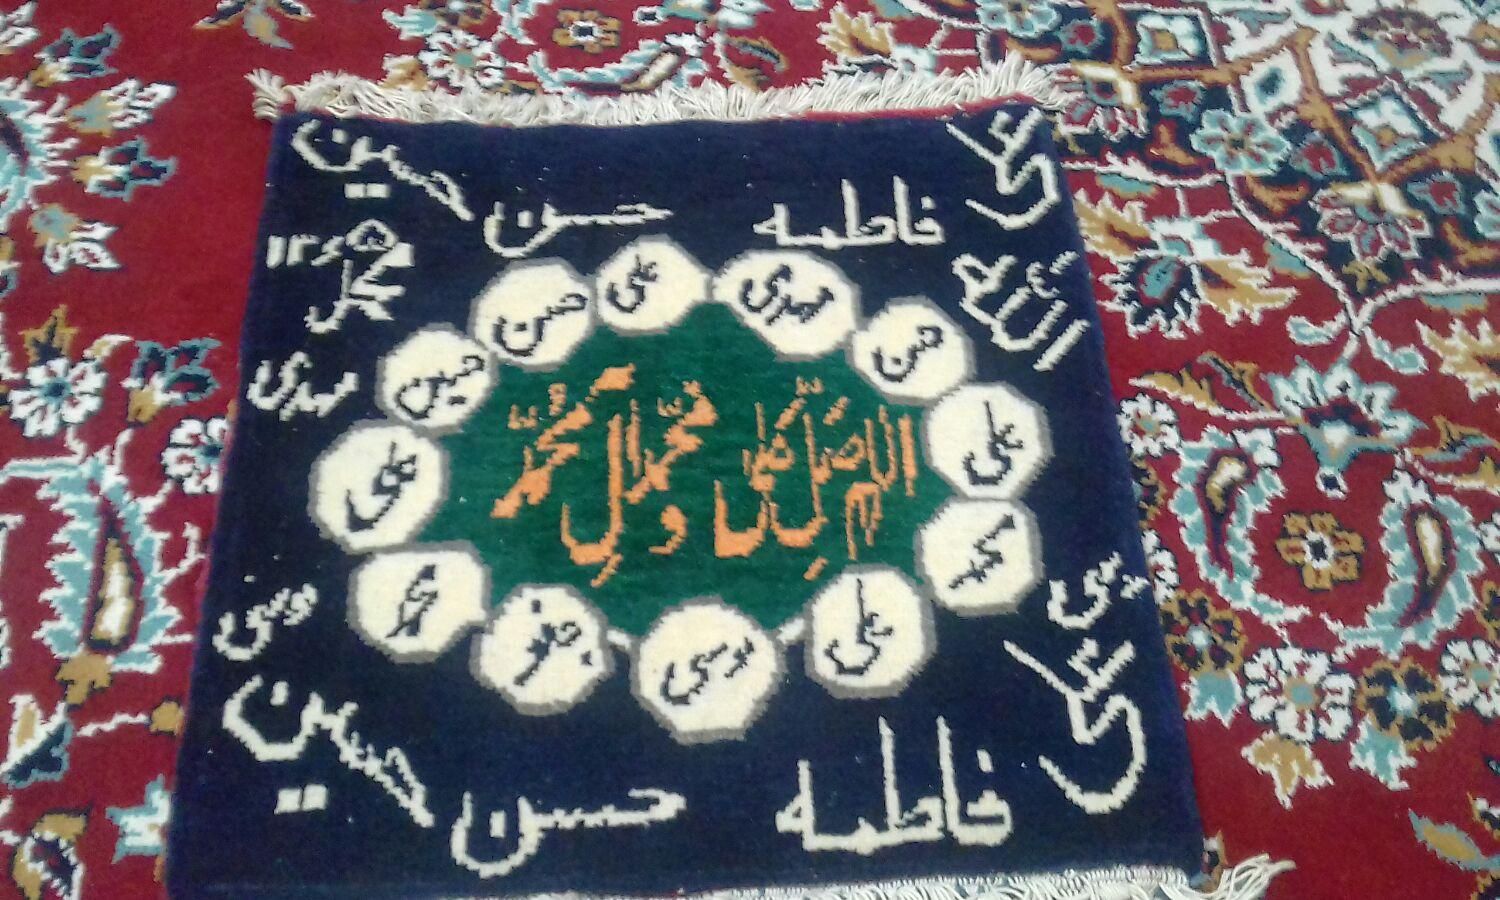 علی فاطمه حسن حسین
الله
محمد
مهدی
علی حسن حسین علی محمد جعفر موسی علی محمد علی حسن مهدی
اللهم صَلِّ عَلی مُحَمَّد وَ آلِ مُحَمَّد
موسی
موسی
علی فاطمه حسن حسین